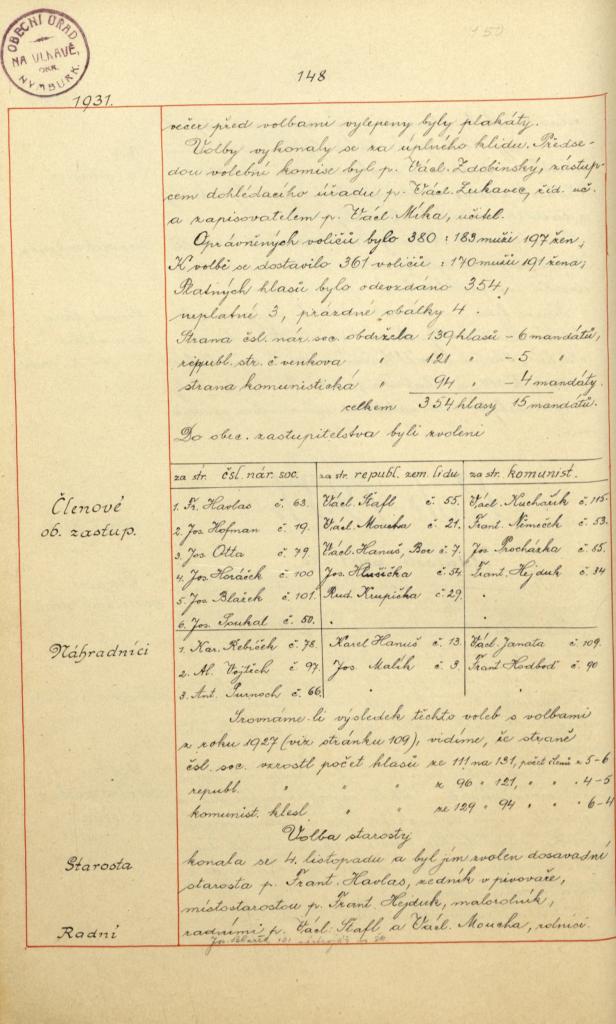 OBECNÍ ÚŘAD
NA VLKAVĚ,
OKR.
NYMBURK.
150
148
1931.
večer před volbami vylepeny byly plakáty.
Volby vykonaly se za úplného klidu. Předse-
dou volební komise byl p. Václ. Zdobinský, zástup-
cem dohlédacího úřadu p. Václ. Lukavec, říd. uč.
a zapisovatelem p. Václ. Míka, učitel.
Oprávněných voličů bylo 380 : 183 muži 197 žen,
K volbě se dostavilo 361 voličů : 170 mužů 191 žena;
Platných hlasů bylo odevzdáno 354,
neplatné 3, prázdné obálky 4.
Strana čsl. nár. soc. obdržela 139 hlasů – 6 mandátů,
republ. str. č. venkova " 121 " – 5 "
strana komunistická " 94 " – 4 mandáty.
celkem 354 hlasy 15 mandátů.
Do obec. zastupitelstva byli zvoleni
za str. čsl. nár. soc. za str. republ. zem. lidu za str. komunist.
Členové
ob. zastup.
1. Fr. Havlas č. 63. Václ. Štafl č. 55. Václ. Kuchařík č. 115.
2. Jos. Hofman č. 19. Václ. Moucha č. 21. Frant. Němeček č. 53.
3. Jos. Otta č. 79. Václ. Hanuš, Bor č. 7. Jos. Procházka č. 85.
4. Jos. Horáček č. 100 Jos. Hlušička č. 54. Frant. Hejduk č. 34
5. Jos. Blažek č. 101. Rud. Krupička č. 29. "
6. Jos. Soukal č. 50. " "
Náhradníci
1. Kar. Řebíček č. 78. Karel Hanuš č. 13. Václ. Janata č. 109.
2. Al. Vojtěch č. 97. Jos. Malík č. 3. Frant. Hodboď č. 90
3. Ant. Purnoch č. 66. " "
Srovnáme-li výsledek těchto voleb s volbami
z roku 1927 (viz stránku 109), vidíme, že straně
čsl. soc. vzrostl počet hlasů ze 111 na 131, počet členů z 5-6
republ. " " " z 96 " 121, " " 4-5
komunist. klesl " " ze 129 " 94 " " 6-4
Volba starosty
Starosta
konala se 4. listopadu a byl jím zvolen dosavadní
starosta p. Frant. Havlas, zedník v pivovaře,
místostarostou p. Frant. Hejduk, malorolník,
Radní
radními p. Václ. Štafl a Václ. Moucha, rolníci.
Jos. Blažek 101